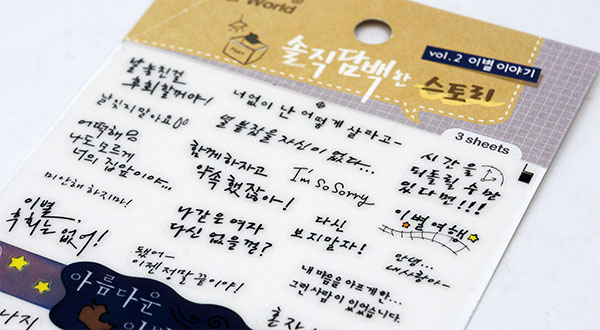 World
솔직담백한
스토리
vol. 2 이별 이야기
3 sheets
날 놓친걸
후회할꺼야!
너없이 난 어떻게 살라고~
날 잊지 말아요
열 불 참을 자신이 없다...
어떡해
나도 모르게
너의 집앞이야...
함께 하자고
약속했잖아!
I'm So Sorry
시간을
되돌릴 수만
있다면!!!
미안해 하지마!
이별
후회는 없어!
나같은 여자
다신 없을껄?
다신
보지말자!
이별여행
안녕...
내사랑아~
됐어~
이젠 정말 끝이야!
내 마음을 아프게 한...
그런 사람이 있었습니다.
아름다운